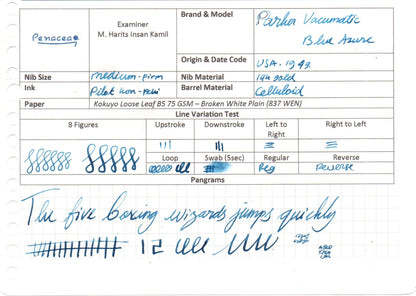 Panacea
Examiner
M. Harits Insan Kamil
Brand & Model
Parker Vacumatic
Blue Azure
Origin & Date Code
USA. 1947.
Nib Size
medium-firm
Nib Material
14k gold
Ink
Pilot kon-peki
Barrel Material
Celluloid
Paper
Kokuyo Loose Leaf B5 75 GSM – Broken White Plain (837 WEN)
Line Variation Test
8 Figures
Upstroke
Downstroke
Left to Right
Right to Left
Loop
Swab (5sec)
Regular
Reverse
Reg
Reverse
Pangrams
The five boxing wizards jumps quickly